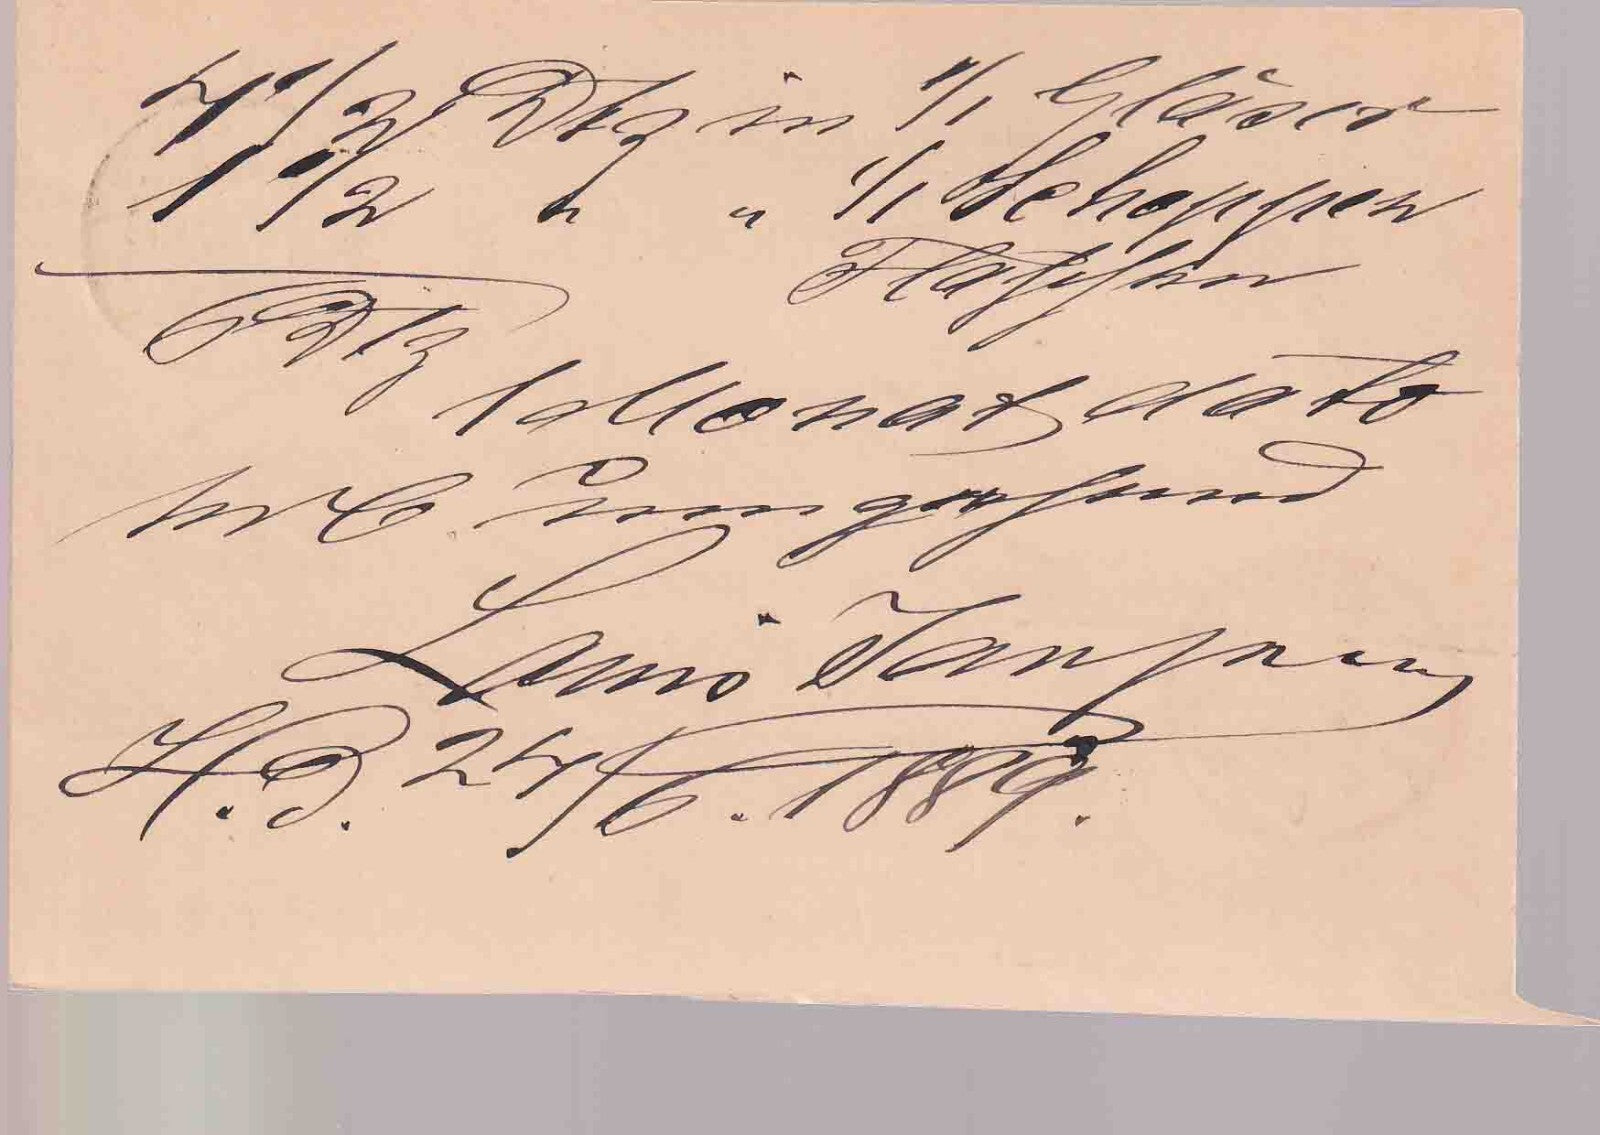 4 1/2 Dtz in 1/1 Gläser
1 1/2 " " 1/1 Schoppen
Flaschen
Dtz
1 Monat dato
Louis Jansen
H.B. 24/6. 1889.